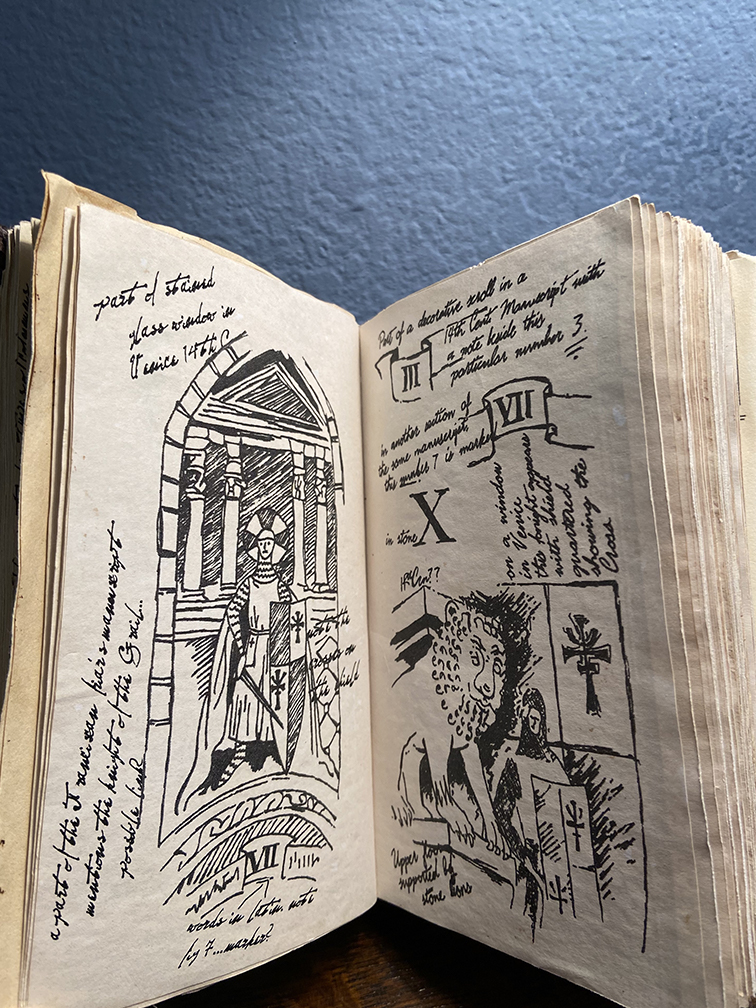 part of stained
glass window in
Venice 14th C
note the
crosses on
the shield
a part of the Franciscan friar's manuscript
mentions the knight of the Grail...
possible link
VII
words in Latin. note
by 7...marker?
Part of a decorative scroll in a
14th Cent Manuscript with
a note beside this
particular number 3.
III
in another section of
the same manuscript,
the number 7 is marked
VII
in stone X
on a window
in Venice
the knight appears
with shield
quartered
showing the
Cross
Upper floor
supported by
stone lions